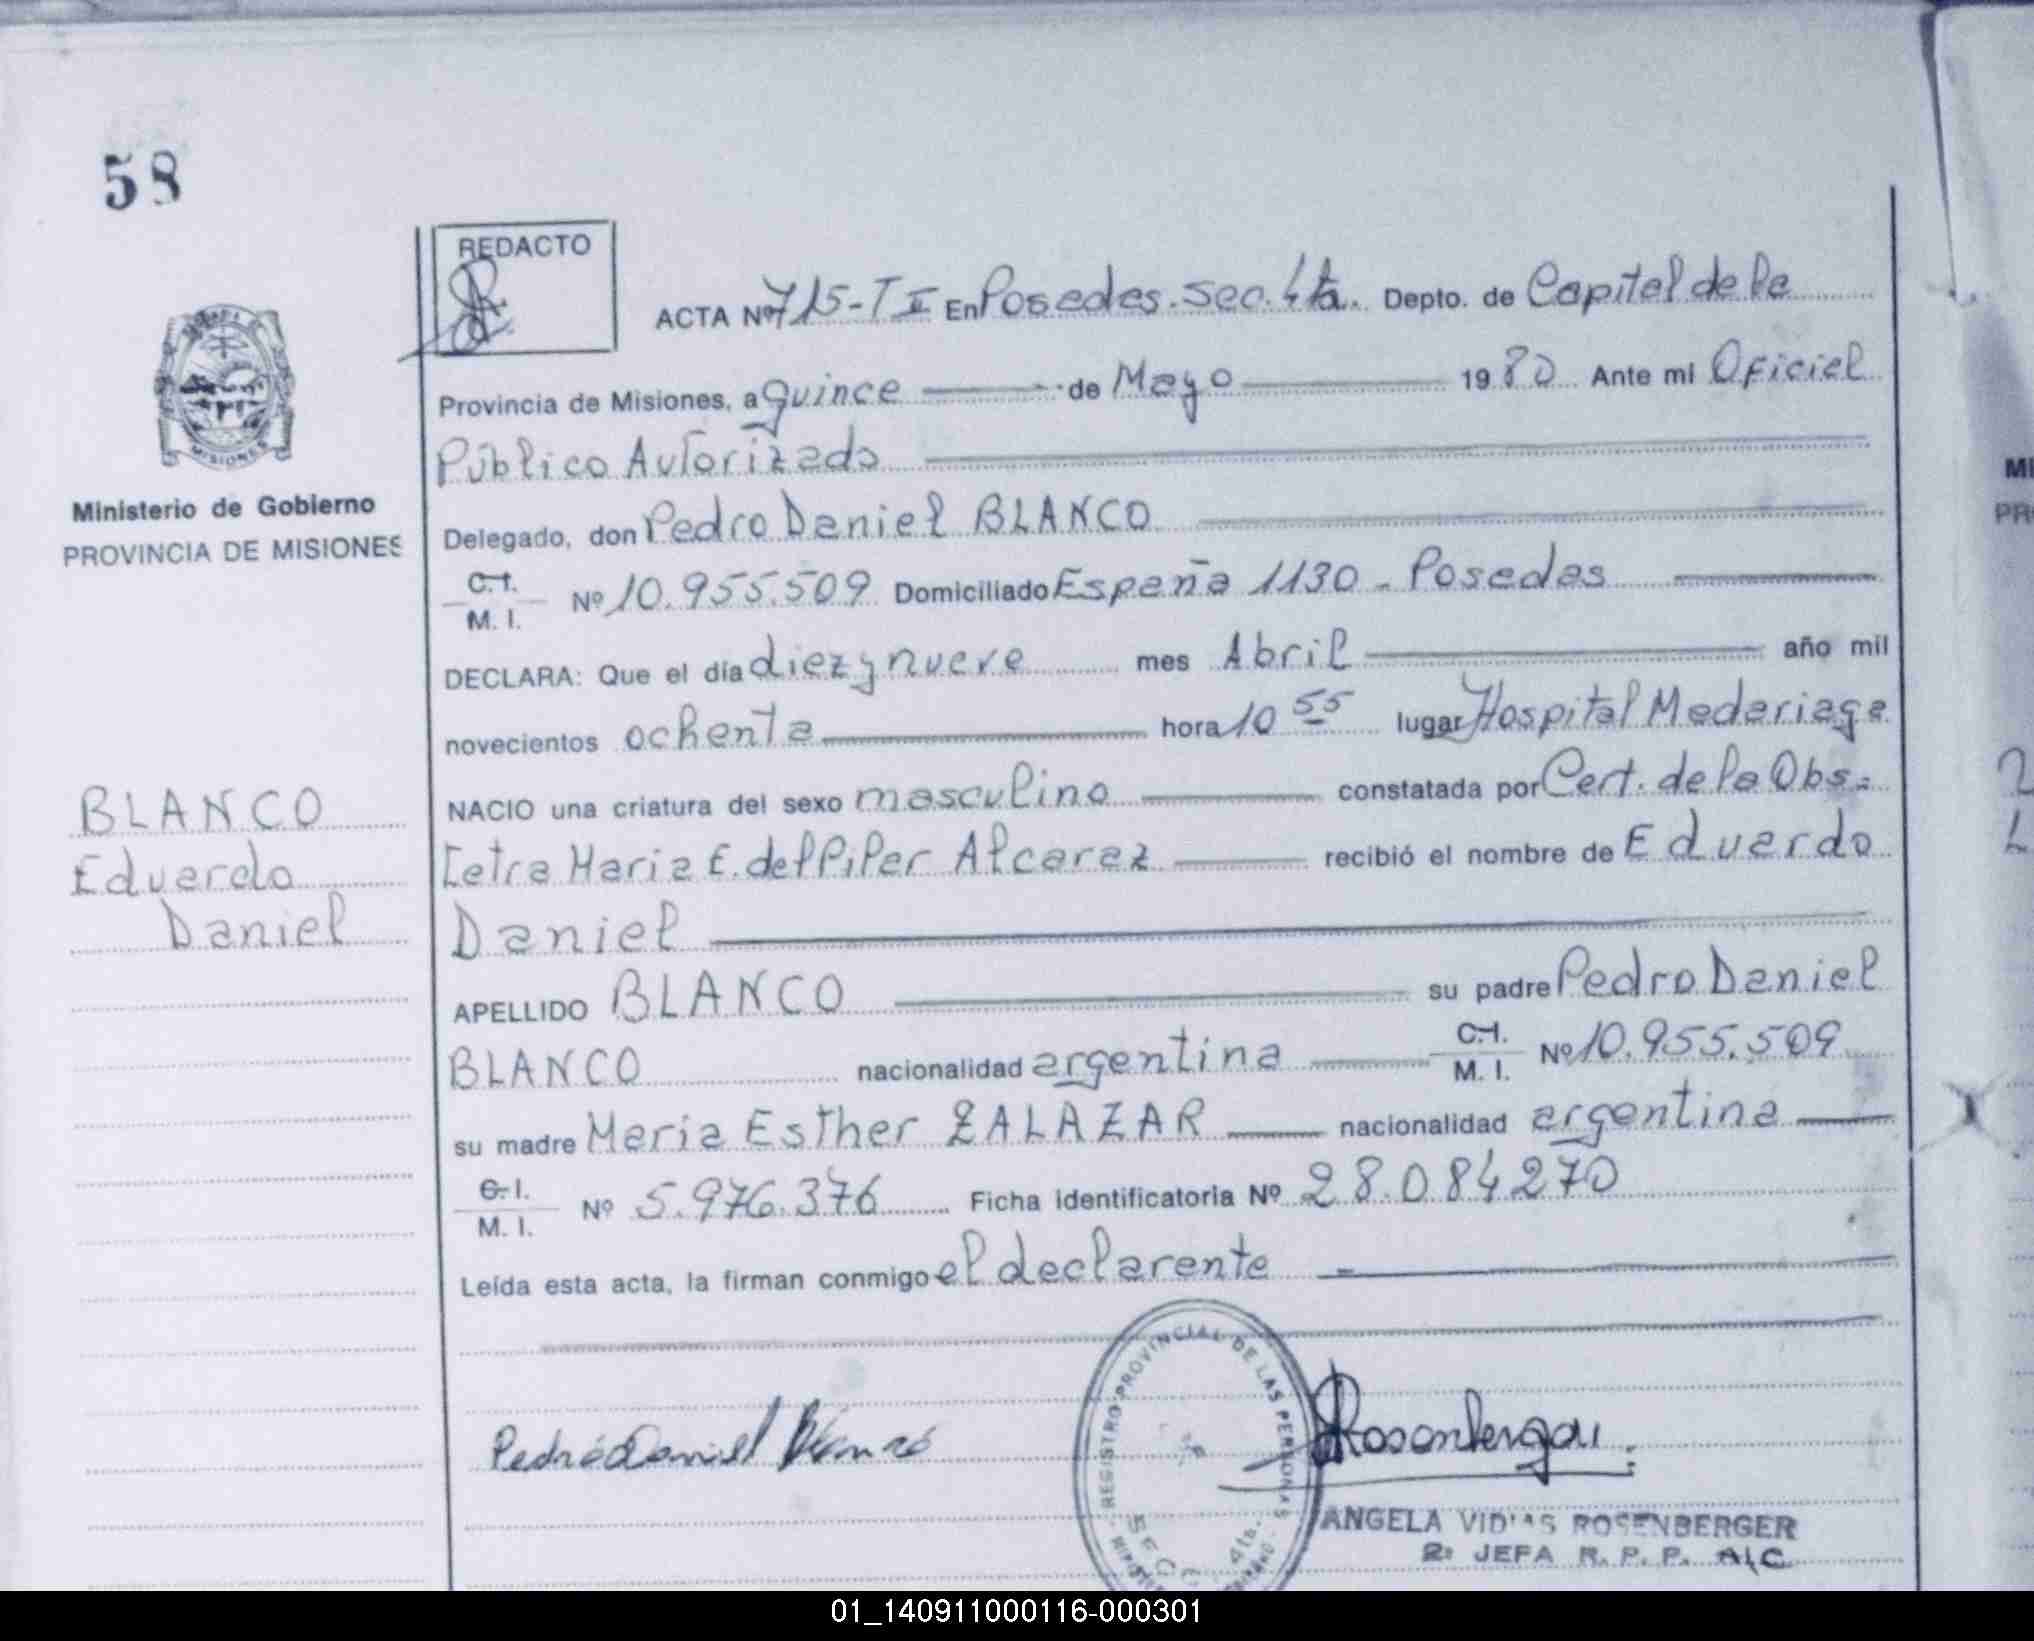 58
REDACTO
ACTA Nº 715-T II En Posadas. Sec. 4ta. Depto. de Capital de la
Provincia de Misiones, a quince de Mayo 1980 Ante mi Oficial
Público Autorizado
MISIONES
Ministerio de Gobierno
PROVINCIA DE MISIONES
Delegado, don Pedro Daniel BLANCO
C.I.
M. I. Nº 10.955.509 Domiciliado España 1130 - Posadas
DECLARA: Que el día diez y nueve mes Abril año mil
novecientos ochenta hora 10 55 lugar Hospital Madariaga
NACIO una criatura del sexo masculino constatada por Cert. de la Obs=
tetra Maria E. del Pilar Alcaraz recibió el nombre de Eduardo
Daniel
BLANCO
Eduardo
Daniel
APELLIDO BLANCO su padre Pedro Daniel
BLANCO nacionalidad argentina C.I.
M. I. Nº 10.955.509
su madre Maria Esther ZALAZAR nacionalidad argentina
C.I.
M. I. Nº 5.976.376 Ficha identificatoria Nº 28.084270
Leída esta acta, la firman conmigo el declarante
Pedro Daniel Blanco
REGISTRO PROVINCIAL DE LAS PERSONAS
SECC. 4ta.
Rosenberger
ANGELA VIDIAS ROSENBERGER
2º JEFA R. P. P. A/C
01_140911000116-000301